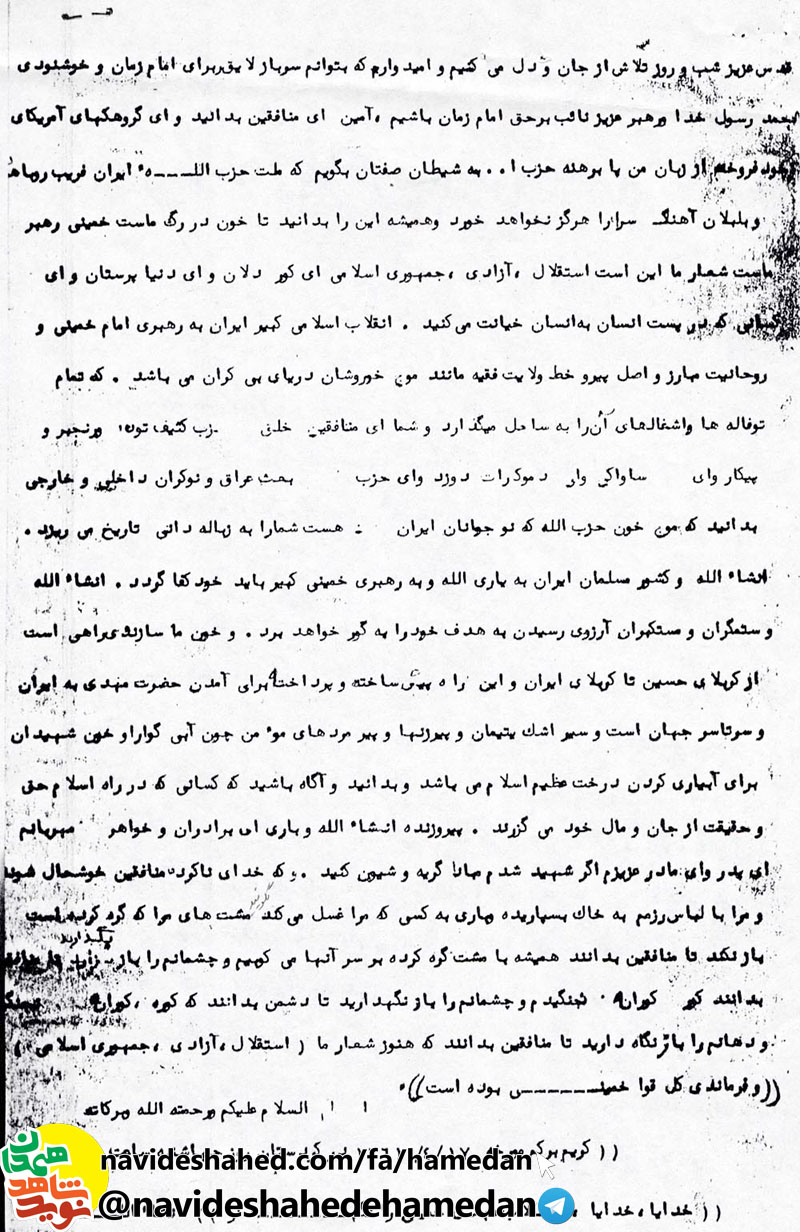 قدس عزیز شب و روز تلاش از جان و دل می کنیم و امیدوارم که بتوانم سرباز لایق برای امام زمان و خوشنودی
محمد رسول خدا و رهبر عزیز نائب برحق امام زمان باشیم ، آمین ای منافقین بدانید و ای گروهکهای آمریکای
خود فروخته از زبان من پا برهنه حزب ا.. به شیطان صفتان بگویم که ملت حزب اللــه ایران فریب روباه
و بلبلان آهنگ سرا را هرگز نخواهد خورد وهمیشه این را بدانید تا خون در رگ ماست خمینی رهبر
ماست شعار ما این است استقلال ، آزادی ، جمهوری اسلامی ای کور دلان و ای دنیا پرستان و ای
کسانی که در پست انسان به انسان خیانت می کنید . انقلاب اسلامی کبیر ایران به رهبری امام خمینی و
روحانیت مبارز و اصل پیرو خط ولایت فقیه مانند موج خوروشان دریای بی کران می باشد . که تمام
توفاله ها واشغالهای آن را به ساحل میگذارد و شما ای منافقین خلق زب کثیف توده ورنجبر و
پیکار وای ساواکی وای دموکرات دوزد وای حزب بعث عراق و نوکران داخلی و خارجی
بدانید که موج خون حزب الله که نو جوانان ایران هست شمارا به زباله دانی تاریخ می ریزد .
انشاء الله و کشور مسلمان ایران به یاری الله و به رهبری خمینی کبیر باید خود کفا گردد . انشاء الله
و ستمگران و مستکبران آرزوی رسیدن به هدف خود را به گور خواهد برد . و خون ما سازنده راهی است
از کربلای حسین تا کربلای ایران و این راه پیش ساخته و پرداخته برای آمدن حضرت مهدی به ایران
و سرتاسر جهان است و سیر اشک یتیمان و پیرزنها و پیر مردهای موء من چون آبی گوارا و خون شهیدان
برای آبیاری کردن درخت عظیم اسلام می باشد و بدانید و آگاه باشید که کسانی که در راه اسلام حق
و حقیقت از جان و مال خود می گزرند . پیروزنده انشاء الله وباری ای برادران و خواهر مهربانم
ای پدر وای مادر عزیزم اگر شهید شدم مبادا گریه و شیون کنید . و که خدای ناکرده منافقین خوشحال شوند
و مرا با لباس رزمم به خاک بسپارید وباری به کسی که مرا غسل می کند مشت های مرا که گره کرده است
باز نکند تا منافقین بدانند همیشه با مشت گره کرده بر سر آنها می کوبیم و چشمانم را باز
بدانند کور کورانه نجنگیدم و چشمانم را باز نگهدارید تا دشمن بدانند که کوره ، کورانه
و دهانم را باز نگاه دارید تا منافقین بدانند که هنوز شعار ما ( استقلال ، آزادی ، جمهوری اسلامی )
(( و فرماندی کل قوا خمینــــی بوده است ))
السلام علیکم ورحمته الله وبرکاته
(( کریم
(( خدایا ، خدایا ،
navideshahed.com/fa/hamedan
@navideshahedehamedan
نوید شاهد همدان